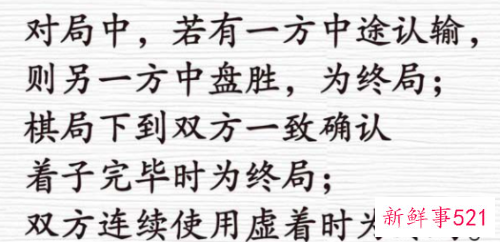 对局中，若有一方中途认输，
则另一方中盘胜，为终局；
棋局下到双方一致确认
着子完毕时为终局；
双方连续使用虚着时为
新鲜事521